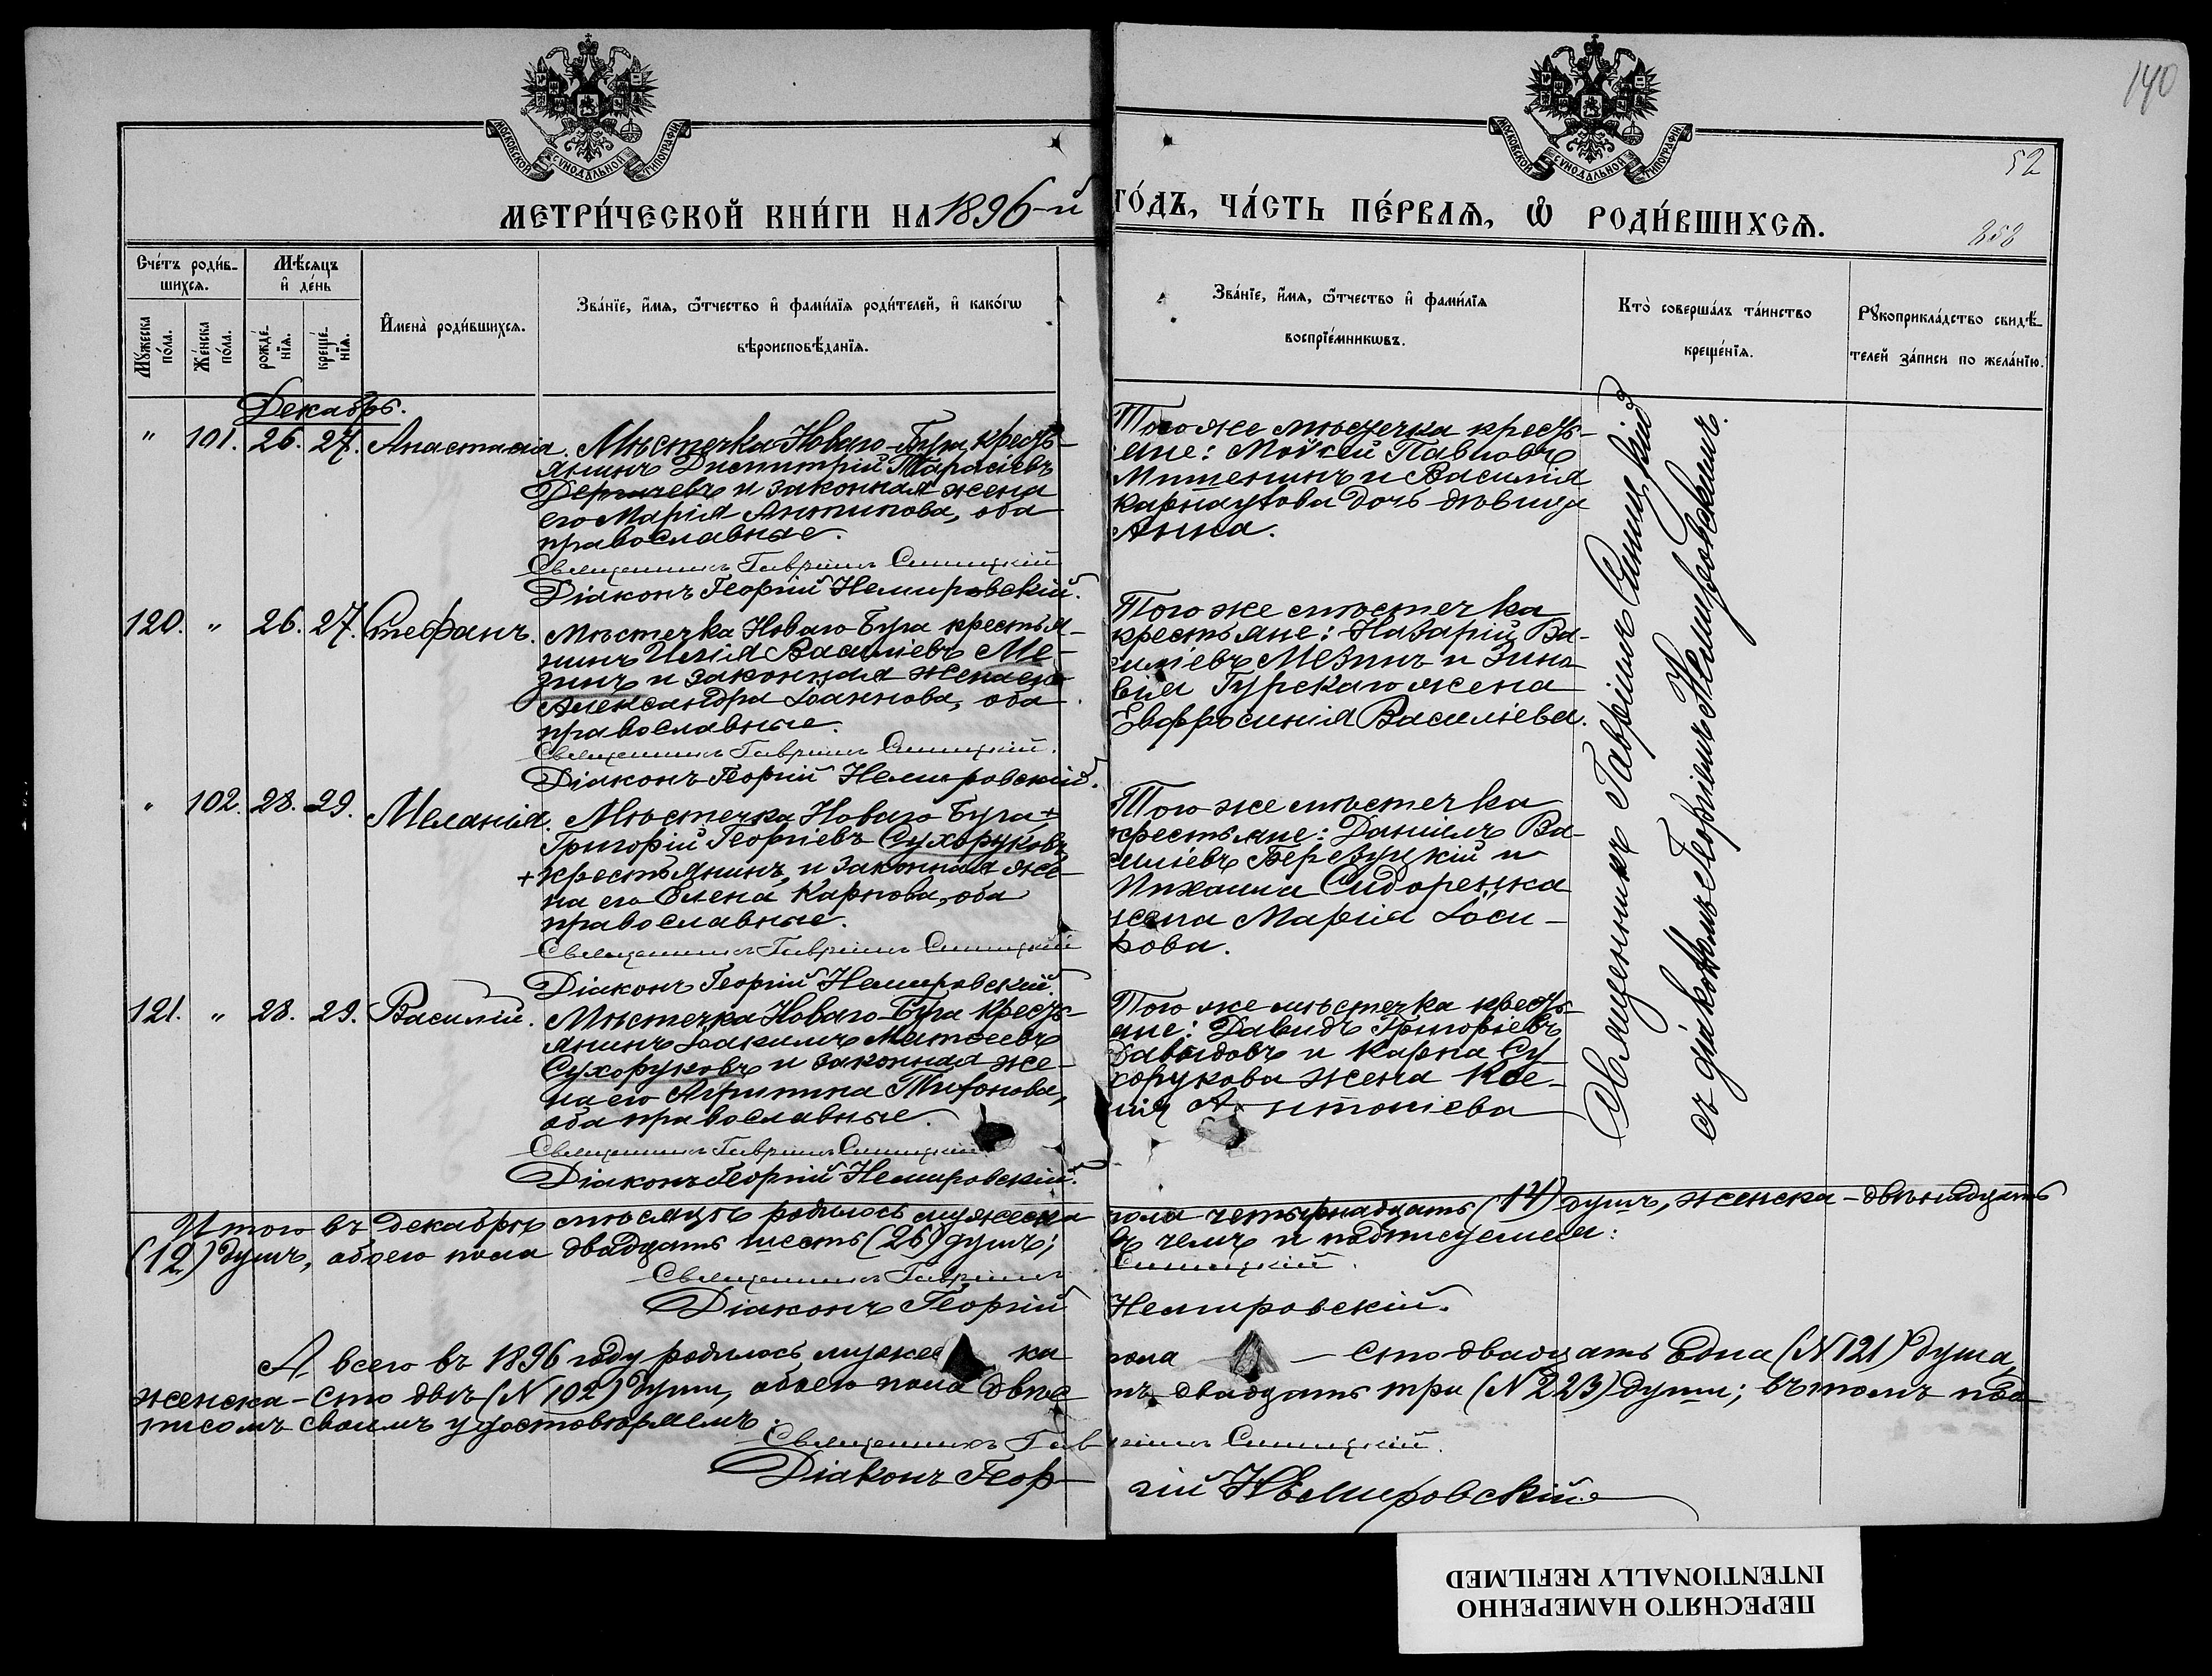 140
52
МОСКОВСКОЙ СѴНОДАЛЬНОЙ ТИПОГРАФІИ
МОСКОВСКОЙ СѴНОДАЛЬНОЙ ТИПОГРАФІИ
МЕТРИ́ЧЕСКОЙ КНИ́ГИ НА 1896-й ГО́ДЪ, ЧА́СТЬ ПЕ́РВАѦ, Ѡ҆ РОДИ́ВШИХСѦ.
Сче́тъ роди́в-
шихсѧ.
Мꙋ́жеска
по́ла.
Же́нска
по́ла.
Мѣ́сѧцъ
и҆ де́нь
рожде́-
нїѧ.
креще́-
нїѧ.
И҆мена̀ роди́вшихсѧ.
Зва́нїе, и҆́мѧ, ѻ҆́тчество и҆ фами́лїѧ роди́телей, и҆ како́гѡ
вѣроисповѣ́данїѧ.
Зва́нїе, и҆́мѧ, ѻ҆́тчество и҆ фами́лїѧ
воспрїе́мникѡвъ.
Кто̀ соверша́лъ та́инство
креще́нїѧ.
Рꙋкоприкла́дство свидѣ́-
телей за́писи по жела́нїю.
Декабрь.
" 101. 26. 27. Анастасія.
Мѣстечка Новаго-Буга кресть-
янинъ Димитрій Тарасіевъ
Дергачевъ и законная жена
его Марія Антипова, оба
православные.
Священникъ Гавріилъ Синицкій
Діаконъ Георгій Немировскій.
Того же мѣстечка кресть-
яне: Мойсей Павловъ
Митенинъ и Василія
Карнаухова дочь дѣвица
Анна.
120. " 26. 27. Стефанъ.
Мѣстечка Новаго-Буга крестья-
нинъ Илія Василіевъ Ме-
зинъ и законная жена его
Александра Іоаннова, оба
православные.
Священникъ Гавріилъ Синицкій.
Діаконъ Георгій Немировскій.
Того же мѣстечка
крестьяне: Назарій Ва-
силіевъ Мезинъ и Зино-
вія Гурскаго жена
Евфросинія Василіева.
" 102. 28. 29. Меланія.
Мѣстечка Новаго-Буга +
Григорій Георгіевъ Сухоруковъ
+ крестьянинъ, и законная же-
на его Елена Карпова, оба
православные.
Священникъ Гавріилъ Синицкій
Діаконъ Георгій Немировскій.
Того же мѣстечка
крестьяне: Даніилъ Ва-
силіевъ Березуцкій и
Михаила Сидоренка
жена Марія Іоси-
фова.
121. " 28. 29. Василій.
Мѣстечка Новаго-Буга кресть-
янинъ Іоакимъ Матѳеевъ
Сухоруковъ и законная же-
на его Агрипина Трифонова,
оба православные.
Священникъ Гавріилъ Синицкій
Діаконъ Георгій Немировскій.
Того же мѣстечка кресть-
яне: Давидъ Григоріевъ
Давыдовъ и Карпа Су-
хорукова жена Ксе-
нія Антоніева
Священникъ Гавріилъ Синицкій
съ діакономъ Георгіемъ Немировскимъ.
Итого въ декабрѣ мѣсяцѣ родилось мужеска пола четырнадцать (14) душъ, женска - двѣнадцать
(12) душъ, обоего пола двадцать шесть (26) душъ; въ чемъ и подписуемся:
Священникъ Гавріилъ Синицкій.
Діаконъ Георгій Немировскій.
А всего въ 1896 году родилось мужеска пола - сто двадцать одна (N 121) душа,
женска - сто двѣ (N 102) души, обоего пола двѣс тѣ двадцать три (N 223) души; въ томъ под-
писомъ своимъ удостовѣряемъ.
Священникъ Гавріилъ Синицкій.
Діаконъ Геор- гій Немировскій
ПЕРЕСНЯТО НАМЕРЕННО
INTENTIONALLY REFILMED